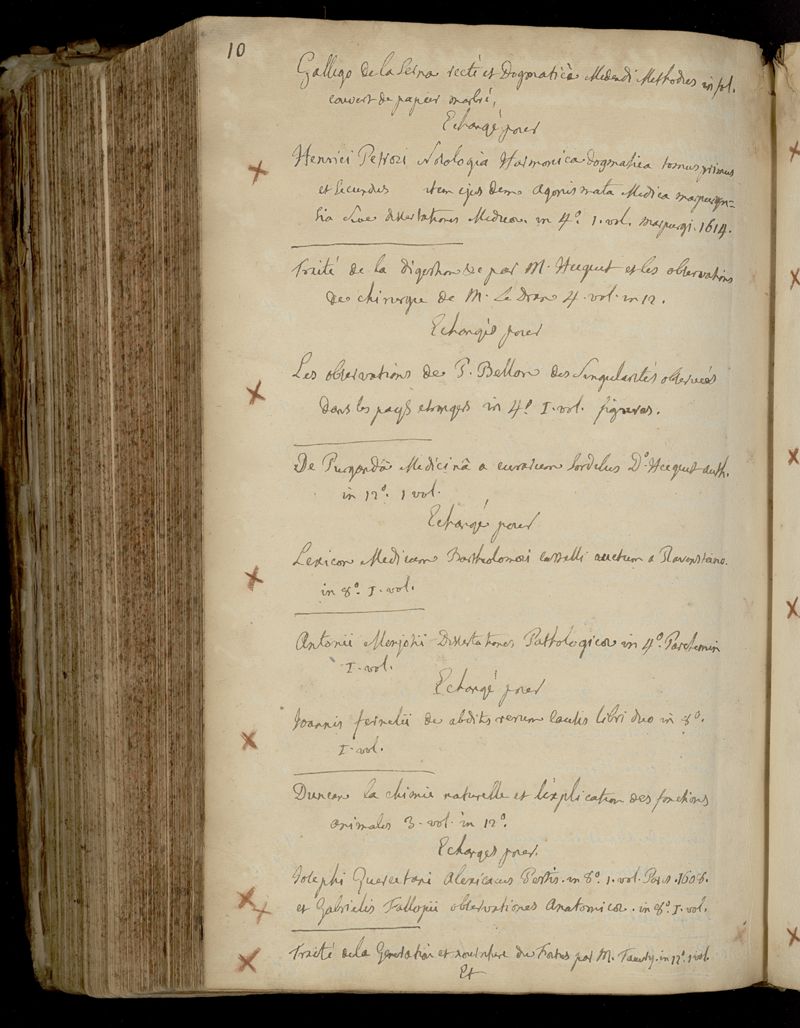 10
Gallego de la Serna recté et Dogmaticè Medendi Methodus in fol.
couvert de papier marbré,
Echangé pour
Henrici Petroei Nosologia Harmonica dogmatica tomus primus
et secundus item ejusdem Agonismata Medica marpurgen=
sia sive dissertationes Medicæ. in 4º. 1. vol. marpurgi. 1614.
Traité de la digestion &c par M. Hecquet et les observations
de chirurgie de M. Le Dran 4. vol. in 12.
Echangés pour
Les observations de P. Bellon des Singularités observées
dans les pays etrangers in 4º. I. vol. figures.
De Purgandâ Medicinâ a curarum sordibus Dº. Hecquet auth.
in 12º. 1 vol.
Echangé pour
Lexicon Medicum Bartholomæi castelli auctum a Ravenstano.
in 8º. I. vol.
Antonii Menjotii Dissertationes Pathologicæ in 4º. Parchemin
I. vol.
Echangé pour
Joannis fernelii de abditis rerum causis libri duo in 8º.
I. vol.
Duncan la chimie naturelle et l'explication des fonctions
animales 3. vol. in 12º.
Echangés pour.
Josephi Quercetani Alexicacus Pestis. in 8º. 1. vol. Paris. 1608.
et Gabrielis Fallopii observationes Anatomicæ. in 8º. I. vol.
Traité de la Generation et nourriture du Foetus par M. Tauvry. in 12º. 1 vol.
Et